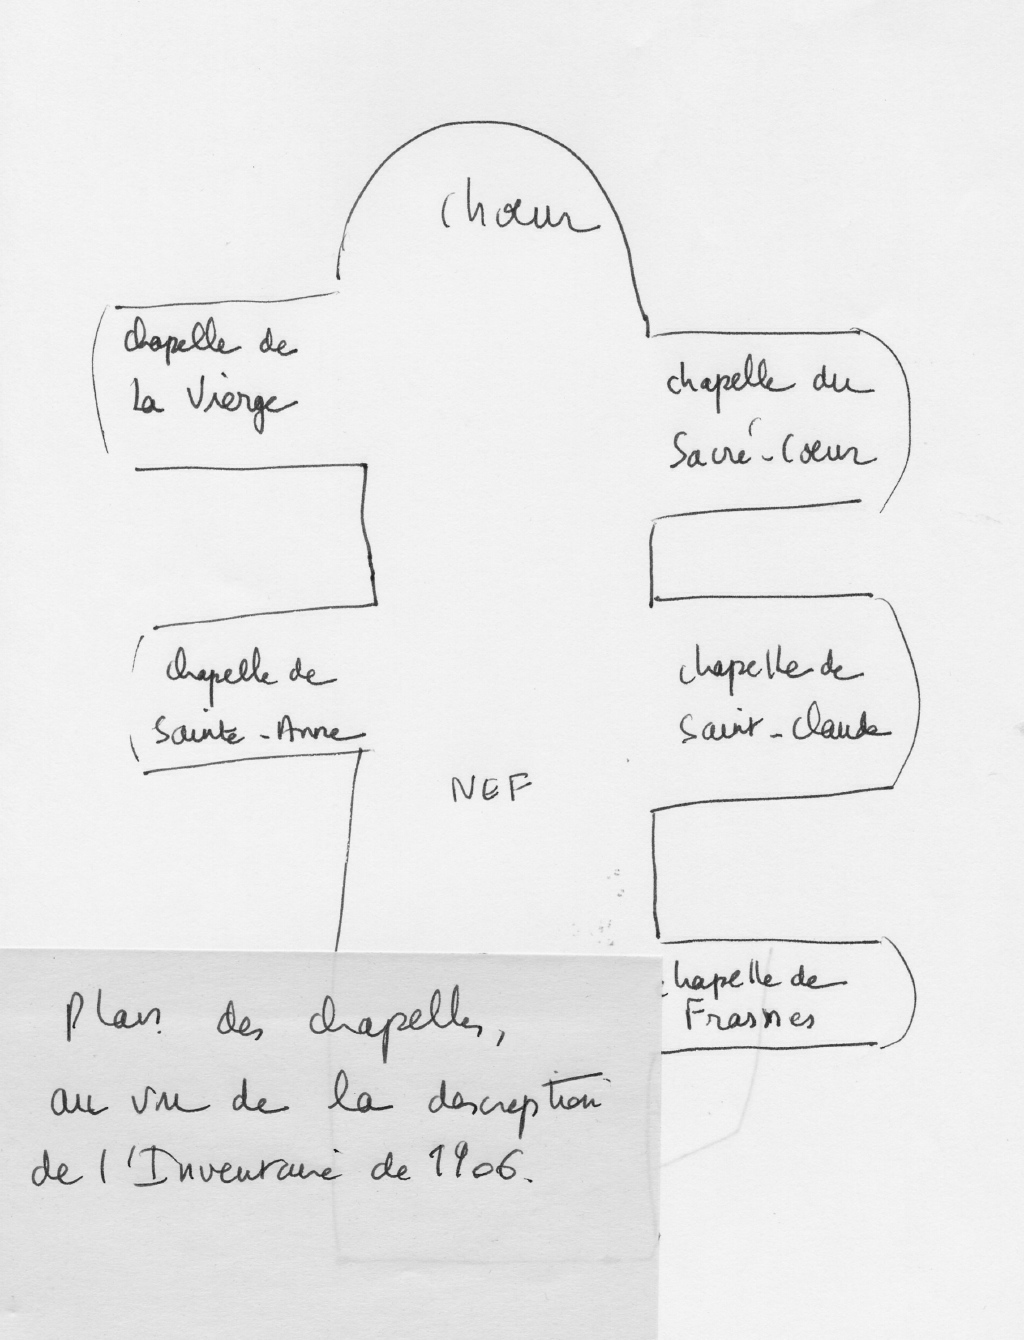 Chœur
chapelle de
La Vierge
chapelle du
Sacré-Cœur
chapelle de
Sainte-Anne
chapelle de
Saint-Claude
NEF
chapelle de
Frasnes
Plan des chapelles,
au vu de la description
de l'Inventaire de 1906.